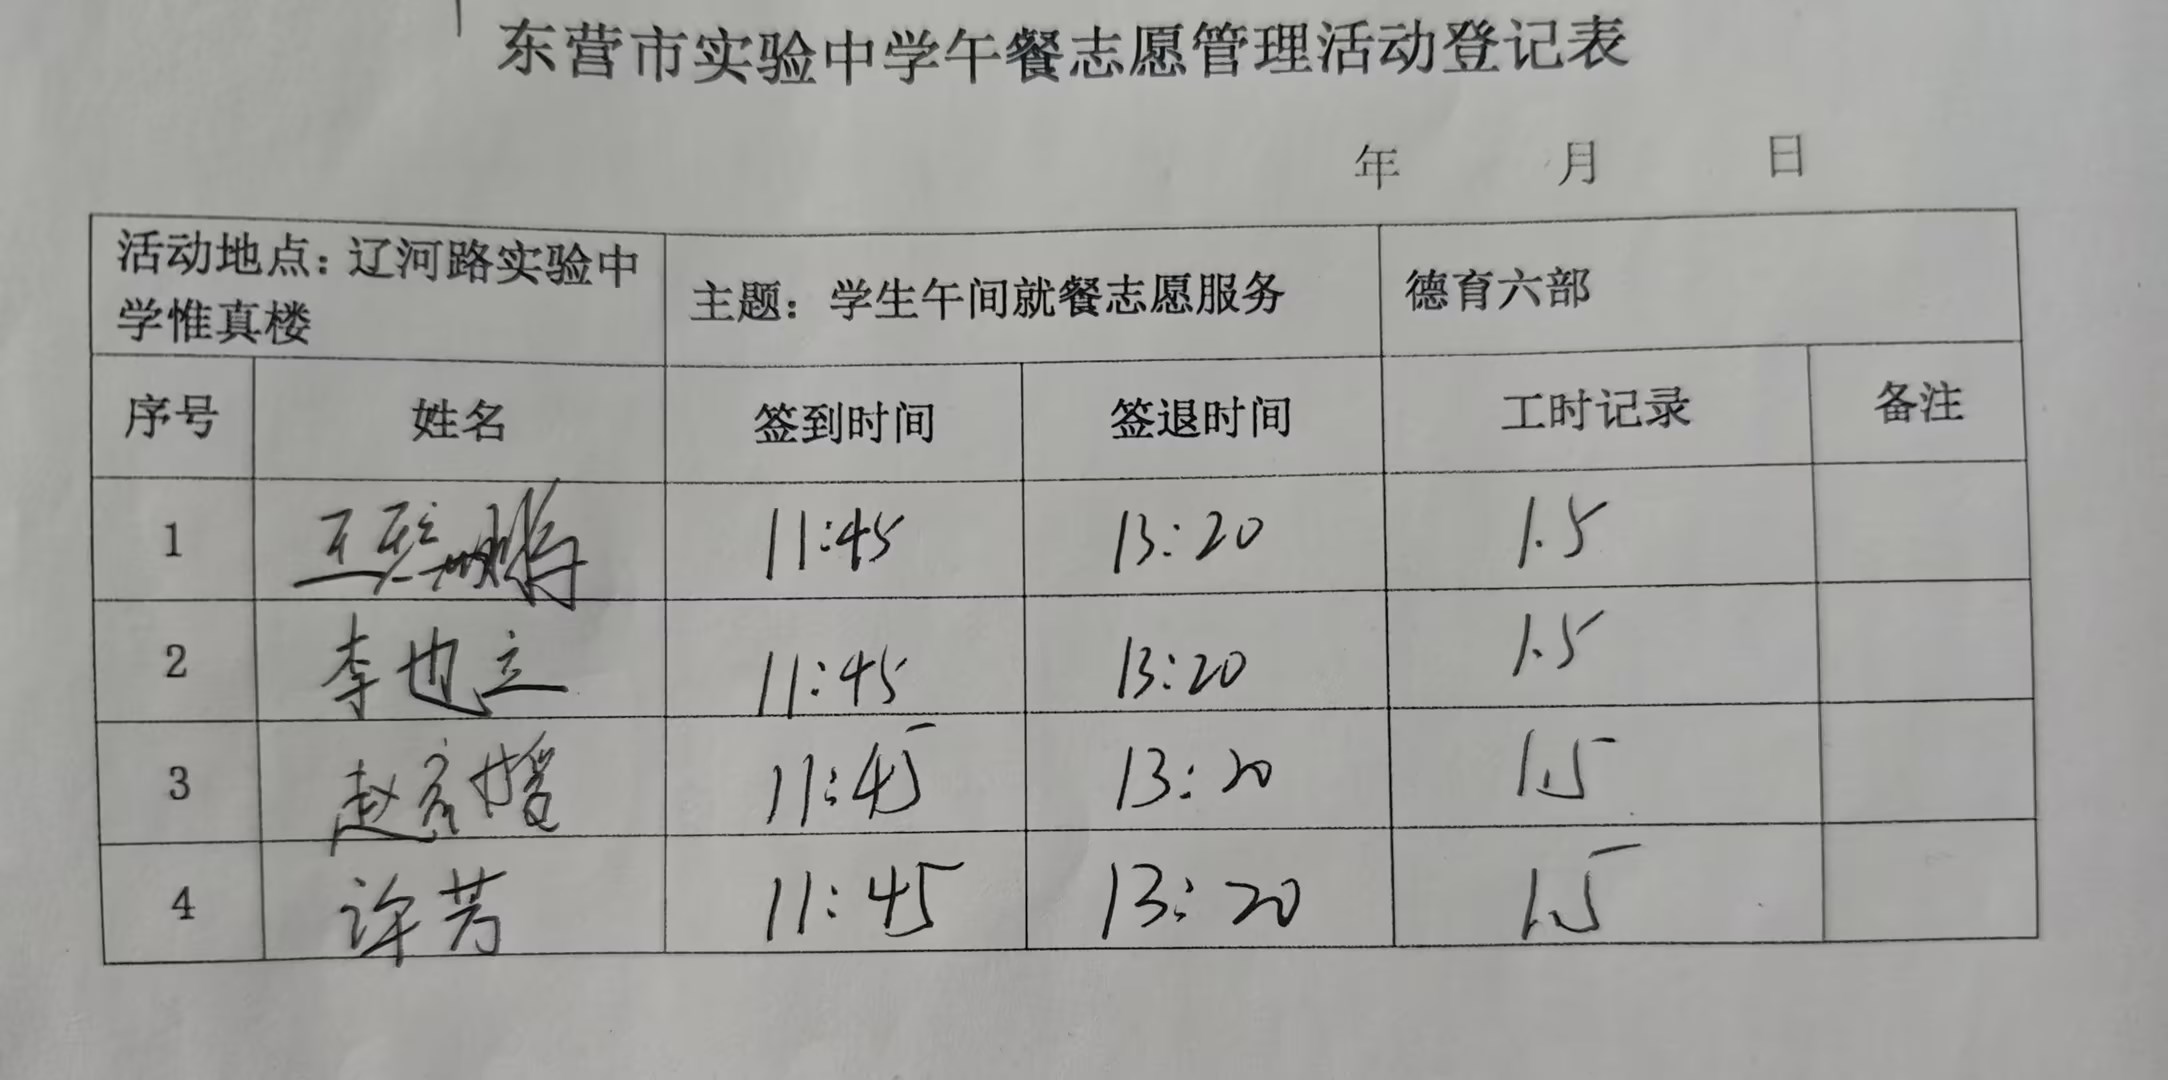 东营市实验中学午餐志愿管理活动登记表
年 月 日
活动地点：辽河路实验中
学惟真楼
主题：学生午间就餐志愿服务
德育六部
序号 姓名 签到时间 签退时间 工时记录 备注
1 王 11:45 13:20 1.5
2 李也立 11:45 13:20 1.5
3 赵彦媛 11:45 13:20 1.5
4 许芳 11:45 13:20 1.5